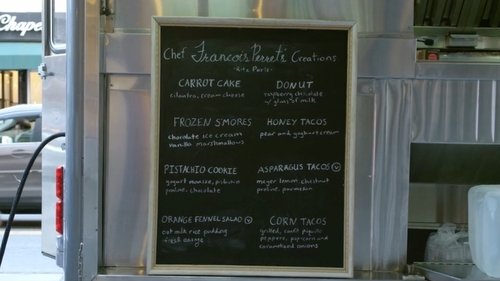 Chape
Chef Francois Perret's Creations
Ritz Paris
CARROT CAKE
cilantro, cream cheese
DONUT
raspberry chocolate
w/ glass of milk
FROZEN S'MORES
chocolate ice cream
vanilla marshmallows
HONEY TACOS
pear and yoghurt cream
PISTACHIO COOKIE
yogurt mousse, pistachio
praline, chocolate
ASPARAGUS TACOS V
meyer lemon, chestnut
praline, parmesan
ORANGE FENNEL SALAD V
oat milk rice pudding
fresh orange
CORN TACOS
grilled, confit piquillo
peppers, popcorn and
caramelized onions